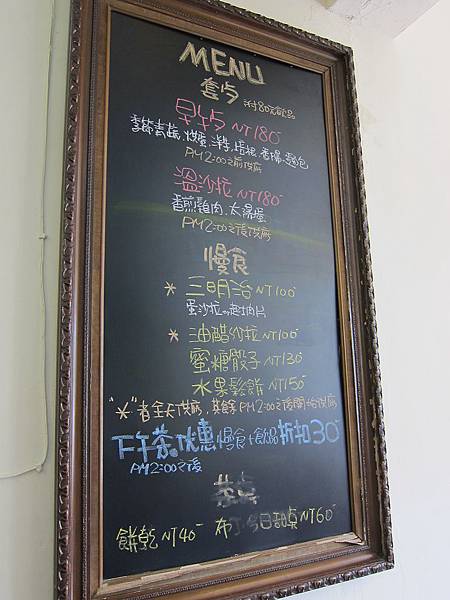 MENU
套餐 附80元飲品
早午餐 NT180
季節青蔬,烘蛋,洋芋,香腸,麵包
PM2:00之前供應
溫沙拉 NT180
香煎雞肉,太陽蛋
PM2:00之後供應
慢食
*三明治 NT100
蛋沙拉 or 起士肉片
*油醋沙拉 NT100
蜜糖骰子 NT130
水果鬆餅 NT150
"*"者全天供應,其餘PM2:00之後開始供應
下午茶優惠 慢食+飲品 折扣30
PM2:00之後
茶点
餅乾 NT40 布丁.今日甜点 NT60